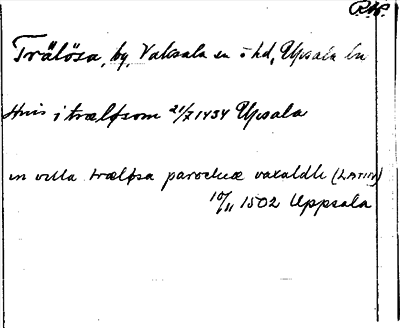 RW.
Trälösa, by, Vaksala sn o hd, Uppsala län
Hus i træløsom 21/7 1434 Uppsala
in villa træløsa parochiæ vaxaldh (LATIN)
10/11 1502 Uppsala